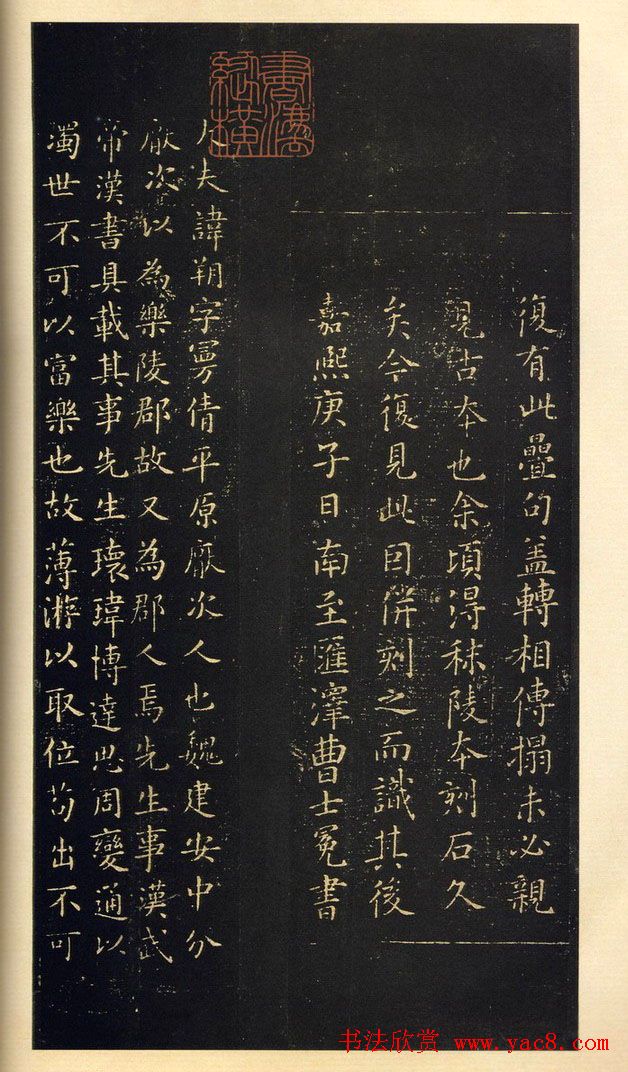 復有此疊句盖轉相傳搨未必親
見古本也余頃得秣陵本刻石久
矣今復見此因併刻之而識其後
嘉熙庚子日南至匯澤曹士冕書
書法
縱橫
大夫諱朔字曼倩平原厭次人也魏建安中分
厭次以為樂陵郡故又為郡人焉先生事漢武
帝漢書具載其事先生瓌瑋博達思周變通以
濁世不可以富樂也故薄游以取位苟出不可
书法欣赏 www.yac8.com